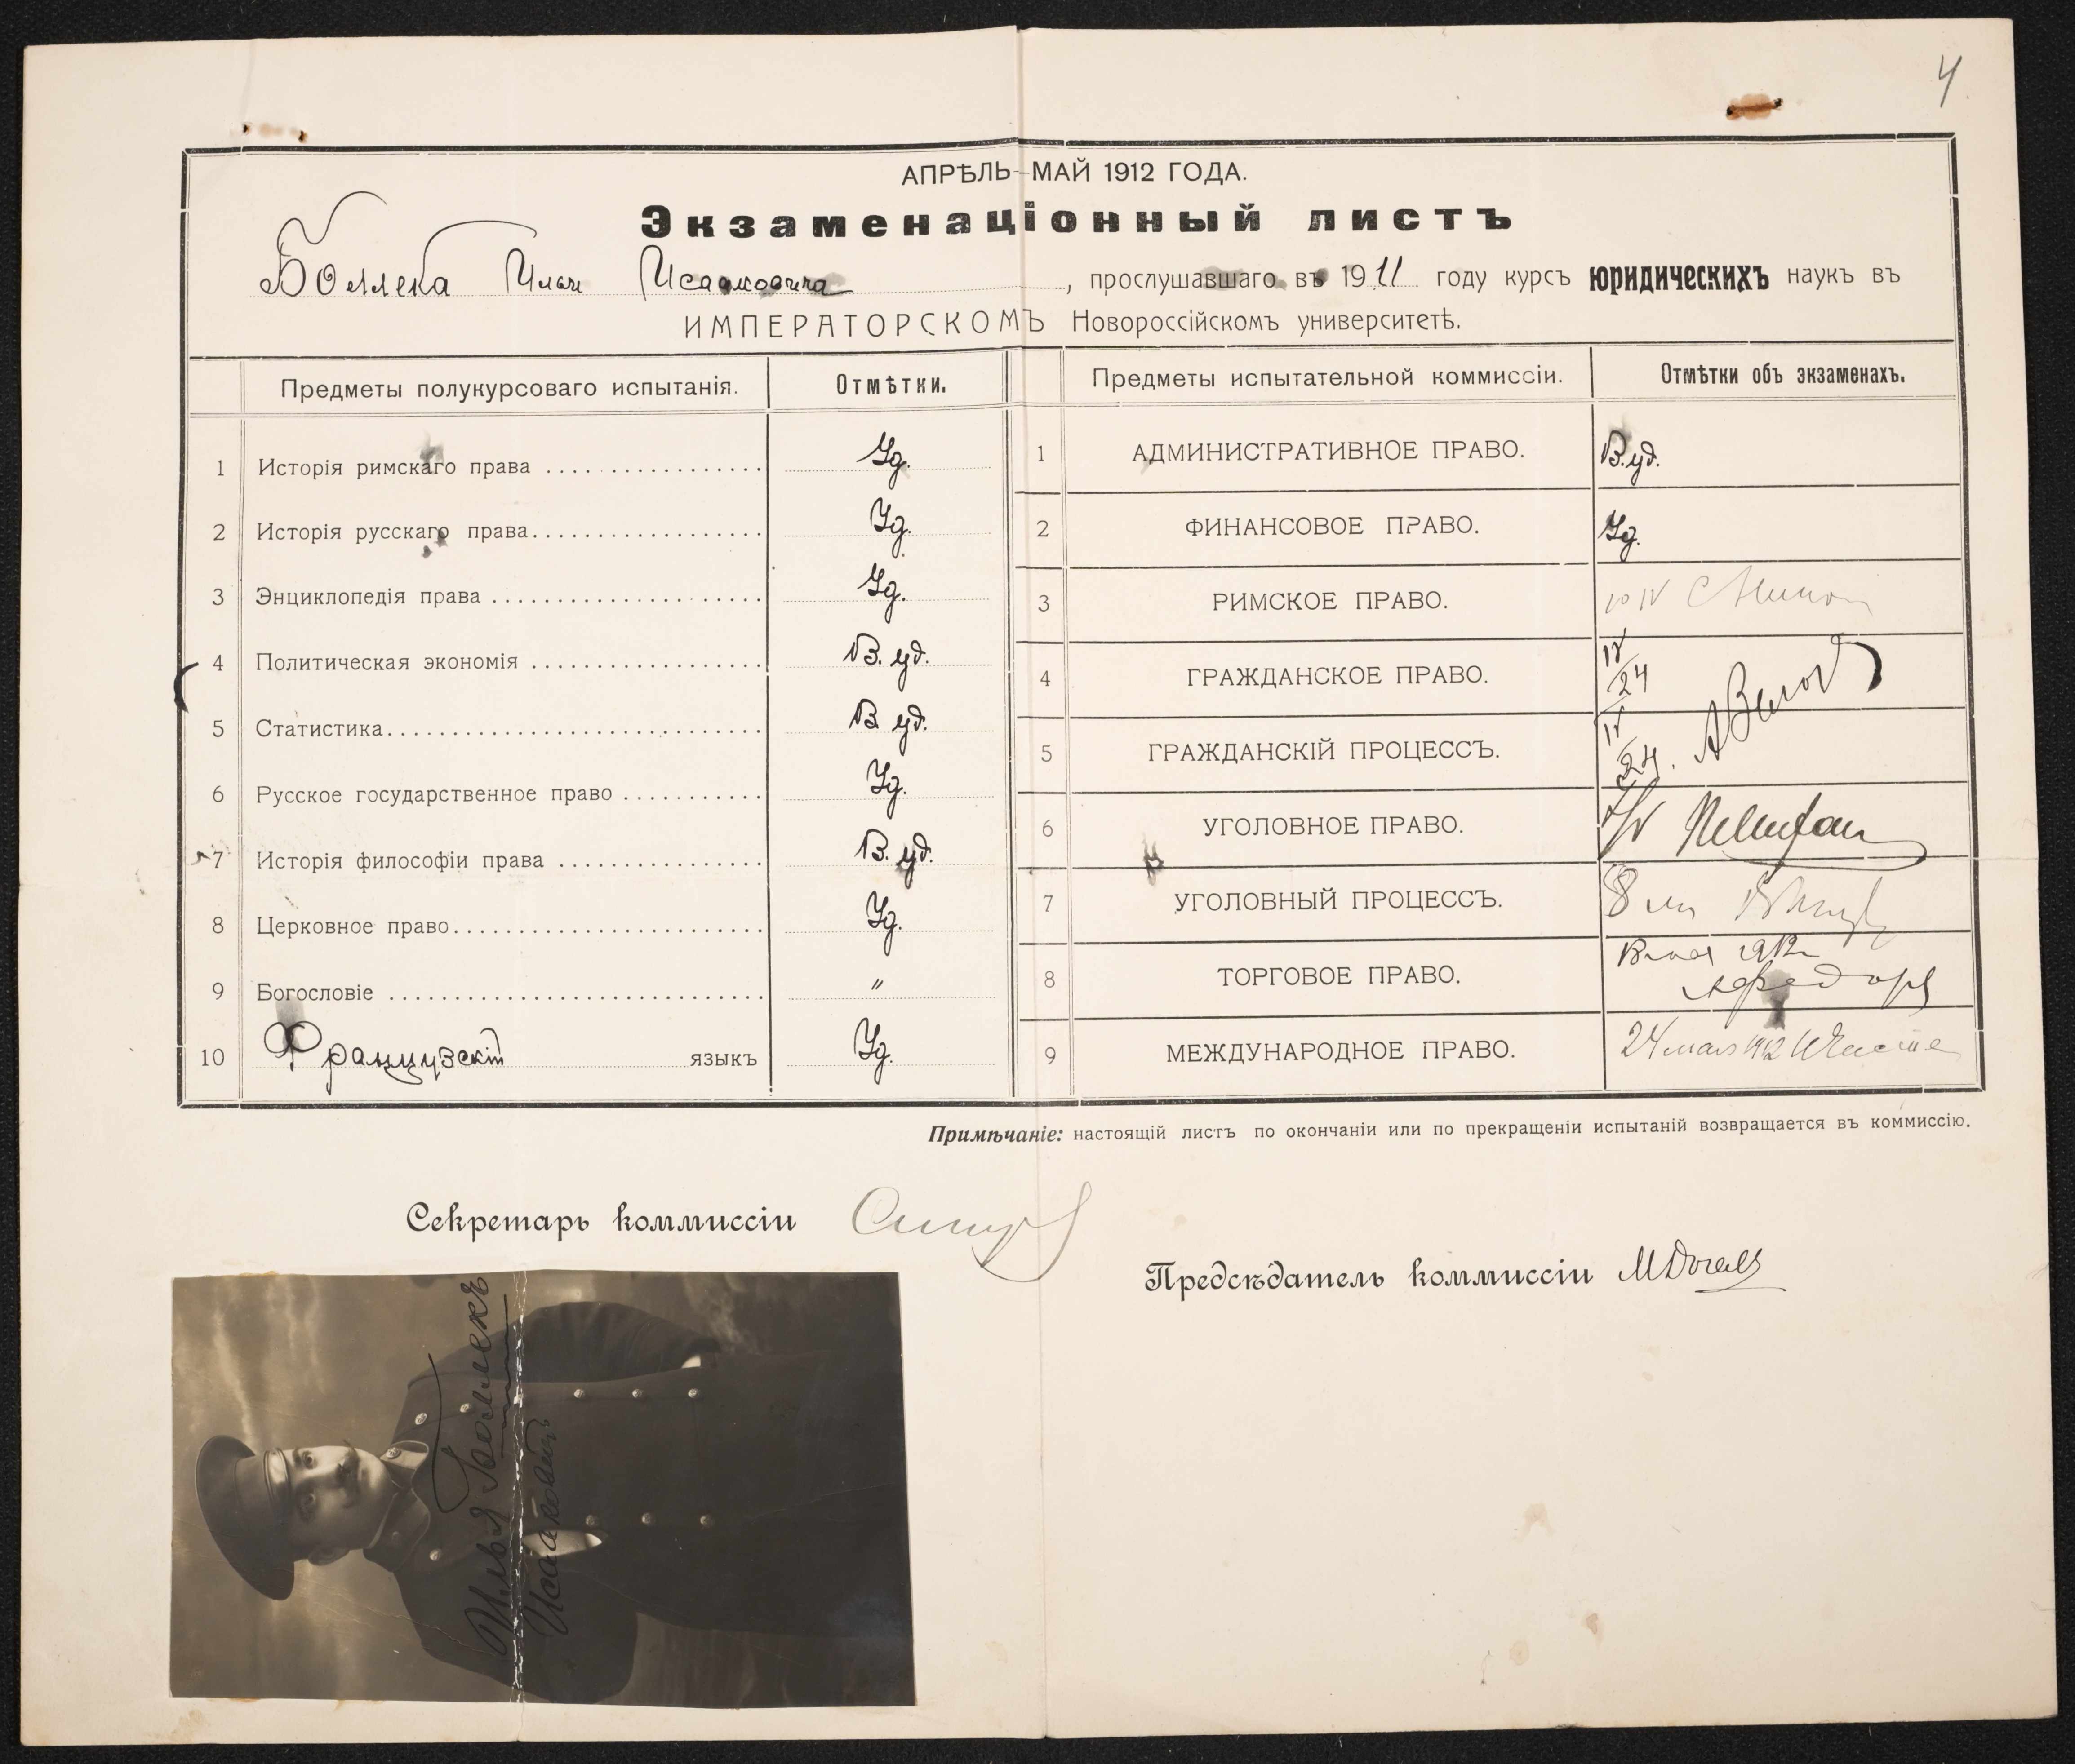 4
АПРѢЛЬ-МАЙ 1912 ГОДА.
Экзаменаціонный листъ
Боллека Ильи Исааковича, прослушавшаго въ 1911 году курсъ юридическихъ наукъ въ
ИМПЕРАТОРСКОМЪ Новороссійскомъ университетѣ.
Предметы полукурсоваго испытанія. Отмѣтки. Предметы испытательной коммиссіи. Отмѣтки объ экзаменахъ.
1 Исторія римскаго права Уд.
2 Исторія русскаго права Уд.
3 Энциклопедія права Уд.
4 Политическая экономія В. уд.
5 Статистика В. уд.
6 Русское государственное право Уд.
7 Исторія философіи права В. уд.
8 Церковное право Уд.
9 Богословіе "
10 Французскій языкъ Уд.
1 АДМИНИСТРАТИВНОЕ ПРАВО. В. уд.
2 ФИНАНСОВОЕ ПРАВО. Уд.
3 РИМСКОЕ ПРАВО. 10 IV
4 ГРАЖДАНСКОЕ ПРАВО. IV/24
5 ГРАЖДАНСКІЙ ПРОЦЕССЪ. IV/24.
6 УГОЛОВНОЕ ПРАВО.
7 УГОЛОВНЫЙ ПРОЦЕССЪ. 8
8 ТОРГОВОЕ ПРАВО. мая 1912
9 МЕЖДУНАРОДНОЕ ПРАВО. 24 мая 1912
Примѣчаніе: настоящій листъ по окончаніи или по прекращеніи испытаній возвращается въ коммиссію.
Секретарь коммиссіи
Предсѣдатель коммиссіи
Илья Боллекъ
Исааковичъ